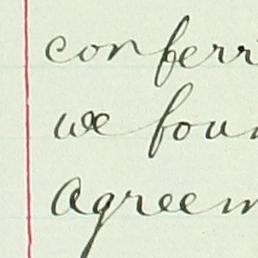 conferr
we foun
agreem